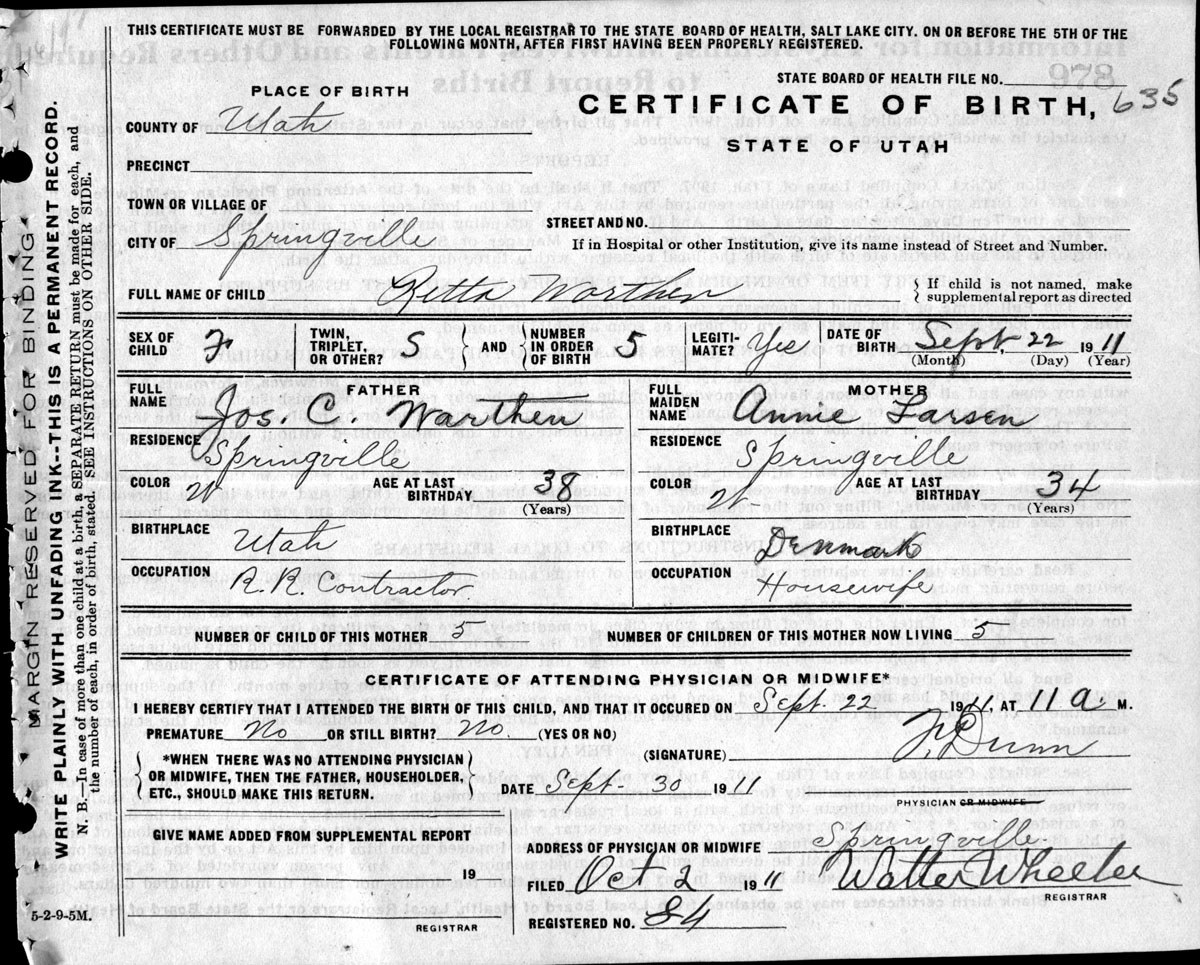 THIS CERTIFICATE MUST BE FORWARDED BY THE LOCAL REGISTRAR TO THE STATE BOARD OF HEALTH, SALT LAKE CITY. ON OR BEFORE THE 5TH OF THE
FOLLOWING MONTH, AFTER FIRST HAVING BEEN PROPERLY REGISTERED.
STATE BOARD OF HEALTH FILE NO. 978
PLACE OF BIRTH
CERTIFICATE OF BIRTH, 635
STATE OF UTAH
COUNTY OF Utah
PRECINCT
TOWN OR VILLAGE OF
STREET AND NO.
CITY OF Springville
If in Hospital or other Institution, give its name instead of Street and Number.
FULL NAME OF CHILD Retta Worthen
{ If child is not named, make
supplemental report as directed
SEX OF CHILD F
TWIN, TRIPLET, OR OTHER? S
{ AND } NUMBER IN ORDER OF BIRTH 5
LEGITIMATE? Yes
DATE OF BIRTH Sept, 22 1911
(Month) (Day) (Year)
FATHER
FULL NAME Jos. C. Warthen
RESIDENCE Springville
COLOR W AGE AT LAST BIRTHDAY 38
(Years)
BIRTHPLACE Utah
OCCUPATION R.R. Contractor.
MOTHER
FULL MAIDEN NAME Annie Larsen
RESIDENCE Springville
COLOR W AGE AT LAST BIRTHDAY 34
(Years)
BIRTHPLACE Denmark
OCCUPATION Housewife
NUMBER OF CHILD OF THIS MOTHER 5 NUMBER OF CHILDREN OF THIS MOTHER NOW LIVING 5
CERTIFICATE OF ATTENDING PHYSICIAN OR MIDWIFE*
I HEREBY CERTIFY THAT I ATTENDED THE BIRTH OF THIS CHILD, AND THAT IT OCCURED ON Sept. 22 1911, AT 11 a M.
PREMATURE No OR STILL BIRTH? No. (YES OR NO)
(SIGNATURE) Dunn
{ *WHEN THERE WAS NO ATTENDING PHYSICIAN
OR MIDWIFE, THEN THE FATHER, HOUSEHOLDER,
ETC., SHOULD MAKE THIS RETURN. }
DATE Sept- 30 1911
PHYSICIAN OR MIDWIFE
GIVE NAME ADDED FROM SUPPLEMENTAL REPORT
19
REGISTRAR
ADDRESS OF PHYSICIAN OR MIDWIFE Springville.
FILED Oct 2 1911 Walter Wheeler
REGISTRAR
REGISTERED NO. 84
5-2-9-5M.
MARGIN RESERED FOR BINDING
WRITE PLAINLY WITH UNFADING INK--THIS IS A PERMANENT RECORD.
N. B.—In case of more than one child at a birth, a SEPARATE RETURN must be made for each, and
the number of each, in order of birth, stated. SEE INSTRUCTIONS ON OTHER SIDE.